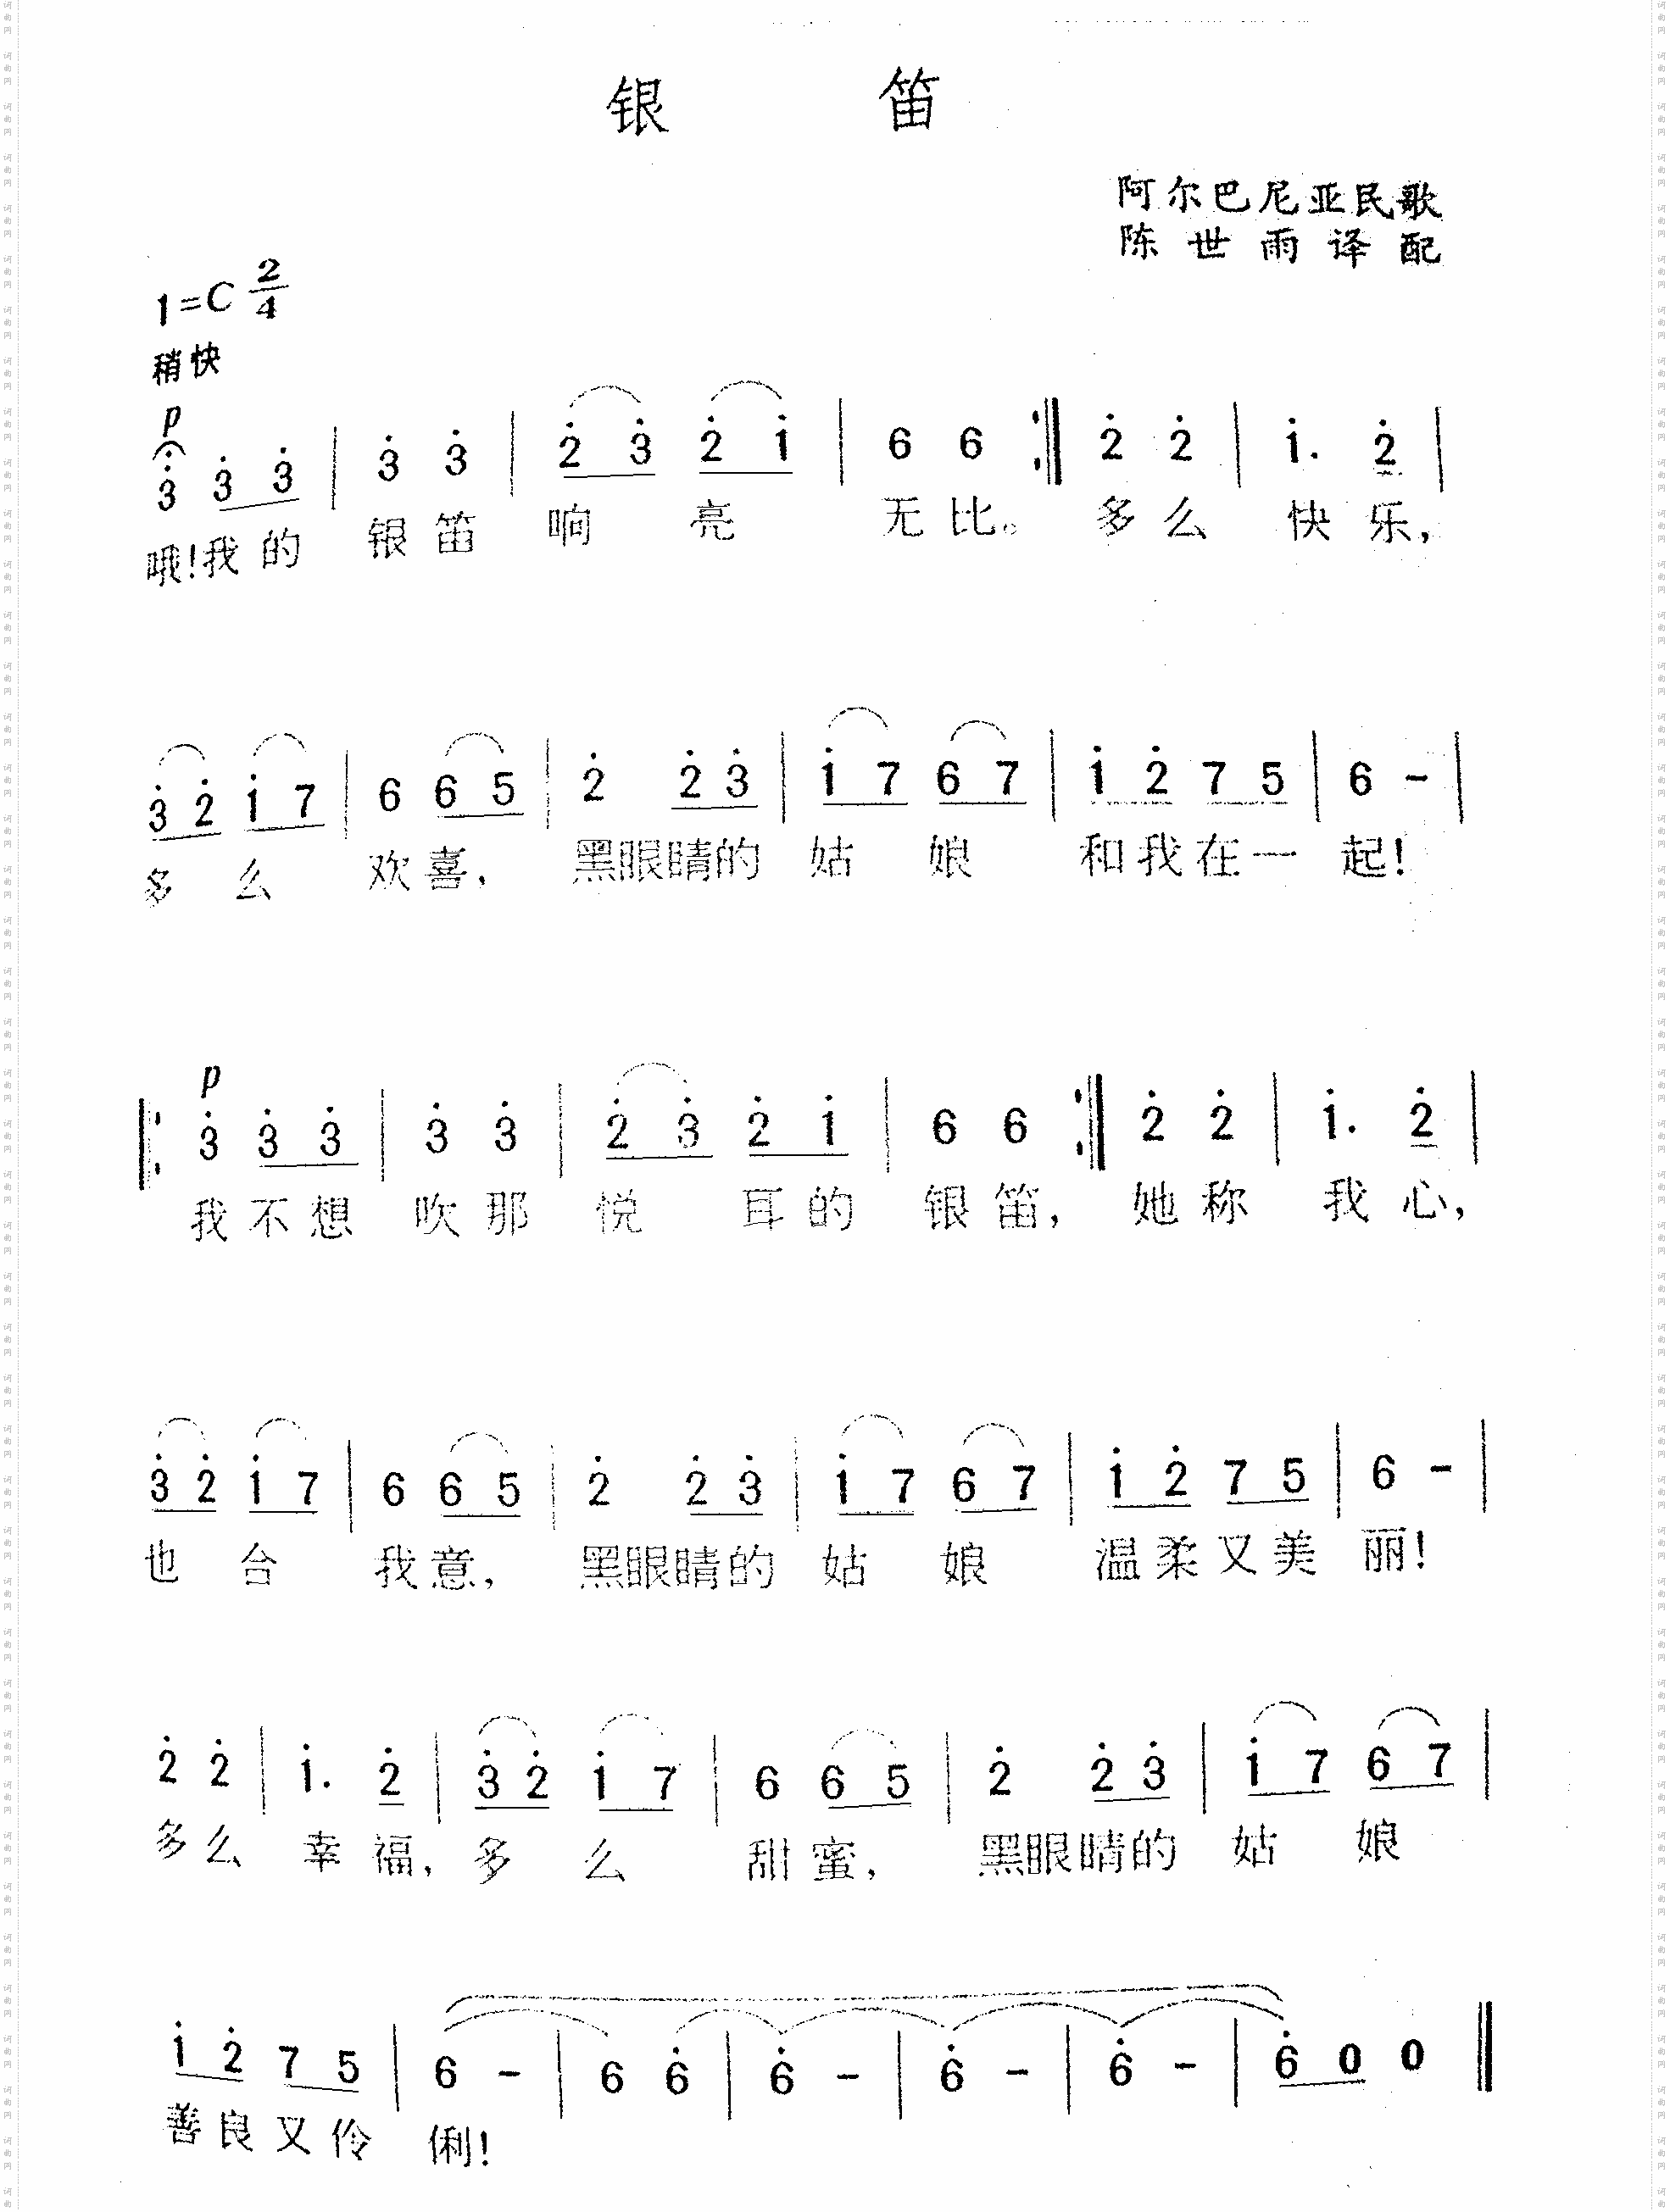 银 笛
阿尔巴尼亚民歌
陈世雨译配
1=C 2/4
稍快
p
3̇ 3̇ 3̇ | 3̇ 3̇ | 2̇ 3̇ 2̇ 1̇ | 6 6 :‖ 2̇ 2̇ | 1̇. 2̇ |
哦!我的 银笛 响 亮 无比。 多么 快乐,
3̇ 2̇ 1̇ 7 | 6 6 5 | 2̇ 2̇ 3̇ | 1̇ 7 6 7 | 1̇ 2̇ 7 5 | 6 - |
多 么 欢喜, 黑眼睛的 姑 娘 和我在一 起!
p
‖: 3̇ 3̇ 3̇ | 3̇ 3̇ | 2̇ 3̇ 2̇ 1̇ | 6 6 :‖ 2̇ 2̇ | 1̇. 2̇ |
我不想 吹那 悦 耳的 银笛, 她称 我心,
3̇ 2̇ 1̇ 7 | 6 6 5 | 2̇ 2̇ 3̇ | 1̇ 7 6 7 | 1̇ 2̇ 7 5 | 6 - |
也 合 我意, 黑眼睛的 姑 娘 温柔又美 丽!
2̇ 2̇ | 1̇. 2̇ | 3̇ 2̇ 1̇ 7 | 6 6 5 | 2̇ 2̇ 3̇ | 1̇ 7 6 7 |
多么 幸福, 多 么 甜蜜, 黑眼睛的 姑 娘
1̇ 2̇ 7 5 | 6 - | 6 6̇ | 6̇ - | 6̇ - | 6̇ - | 6̇ 0 0 ‖
善良又伶 俐!